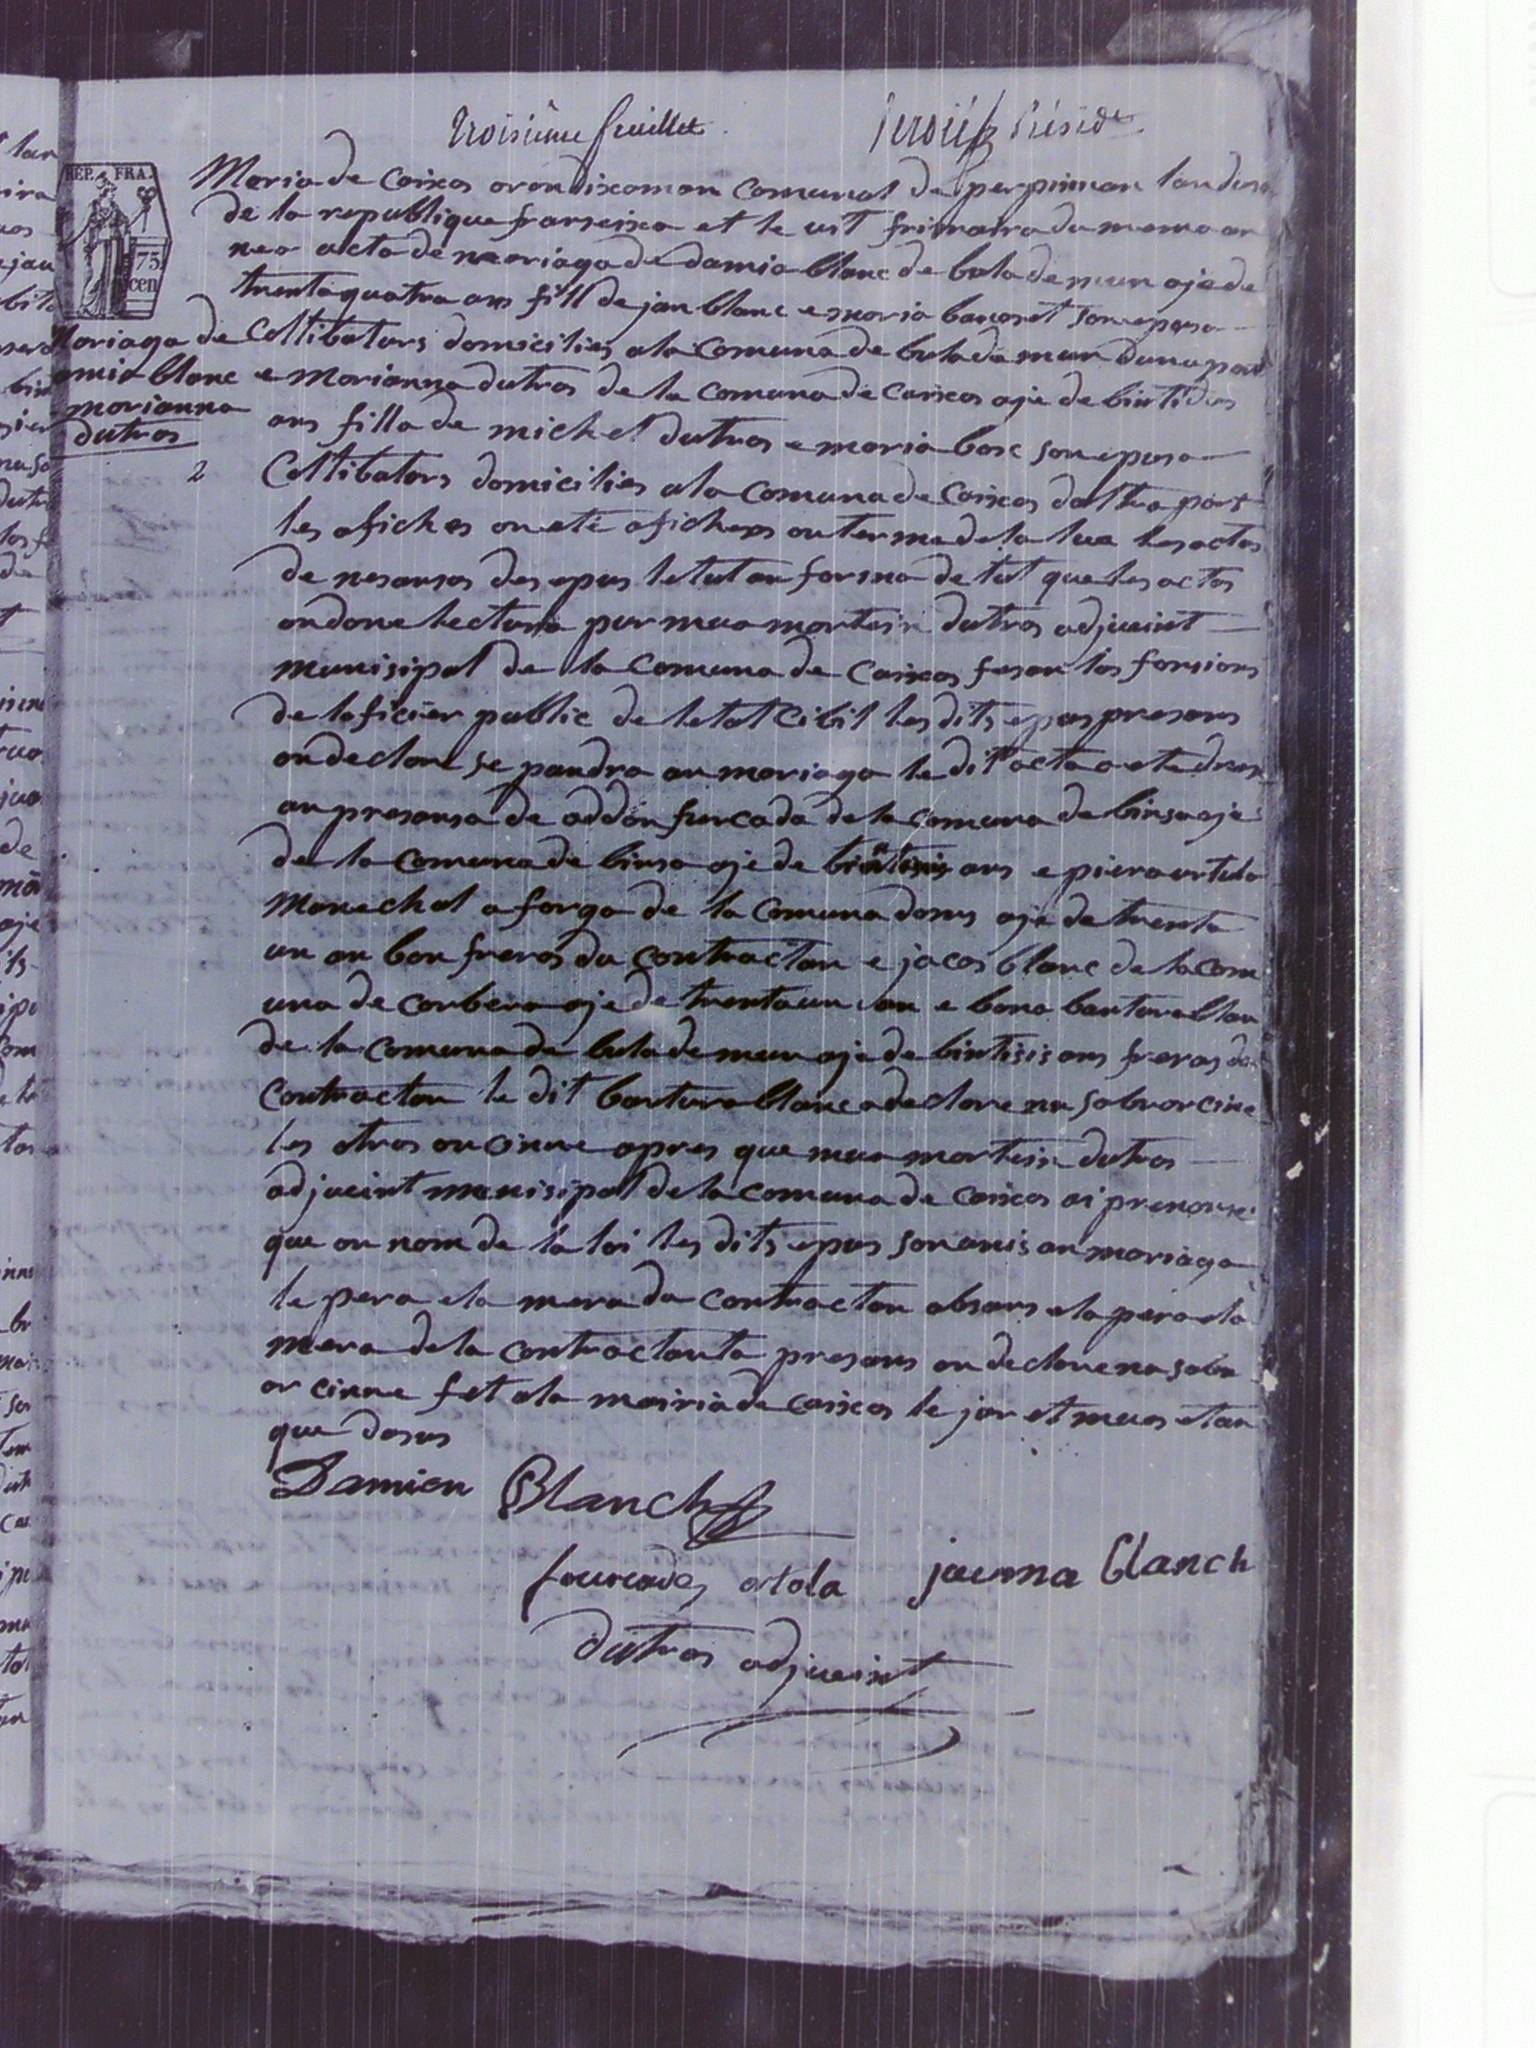 troisième feuillet
REP. FRA.
75
cen
Moriaga de
amia blanc
e morianna
dutras
2
Meria de Caixas arondixaman Comunal de perpinian lan dusa
de la republique franseixa et le uit frimaira du mema an
nea acta de maoriaga de damia blanc de bula de mun aje de
trenta quatra ans fill de jan blanc e maria bancaret son epusa
Coltibaturs domicilies ala Comuna de buladamun duna part
e Morianna dutras de la comuna de Caixas aje de bintidus
ans filla de michel dutras e maria bosc son epusa
Coltibaturs domicilies ala Comuna de Caixas daltra part
les afiches on eté afichees au terme de la lue les actas
de nesansas des epus le tut an forma de tut que les actas
on done lectura par mua martin dutras adjueint
munisipal de la Comuna de Caixas fesan las fonsions
de lofficier public de letat Cibil les dits epus presans
on declare se pandra an mariaga le dit acta a ete dresse
an presansa de addon furcada de la Comuna de binsa aje
de la Comuna de binsa aje de bintisis ans e piera urtula
Marechal a forga de la Comuna donus aje de trenta
un an bon freras du Contractan e jacas blanc de la com
una de corbera aje de trenta un an e bona bantura blan
de la Comuna de bula de mun aje de bintisis ans freras du
Contractan le dit bantura blanc a declare na sabuar cine
les otras on cinne apres que mua martin dutras
adjueint munisipal de la Comuna de Caixas ai prenonse
que on nom de la loi les dits epus son unis an mariaga
le pera e la mera da Contractan absans e la pera e la
mera de la Contractanta presans on declare na sabu
ar cinne fet ala mairia de Caixas le jor et mues et an
que dasus
Damien Blanch
fourcades ortola jauma Blanch
dutras adjueint